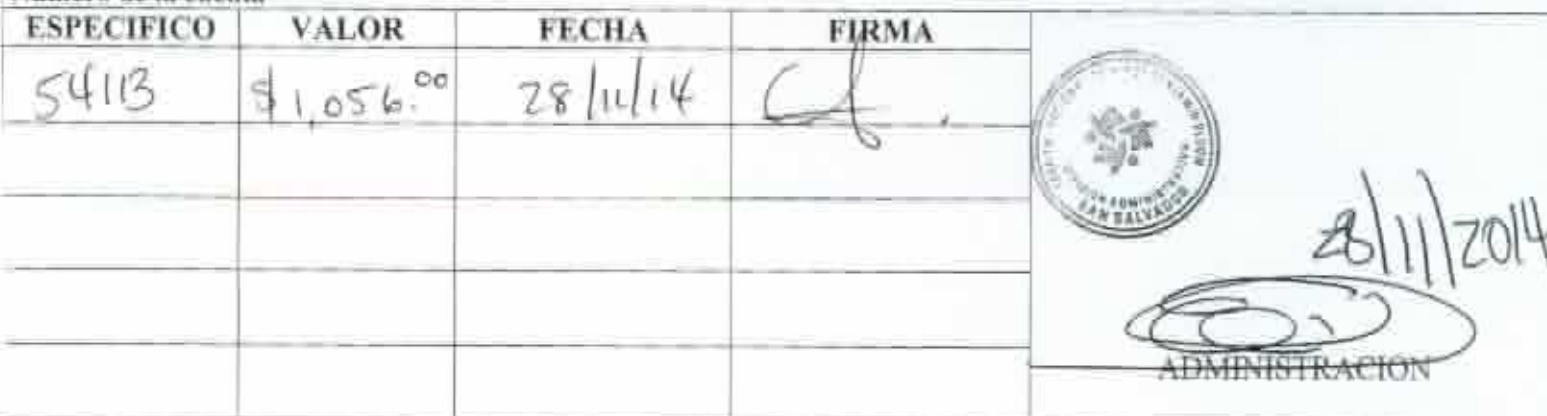 ESPECIFICO VALOR FECHA FIRMA
54113 $1,056.00 28/11/14
SAN SALVADOR
28/11/2014
ADMINISTRACION